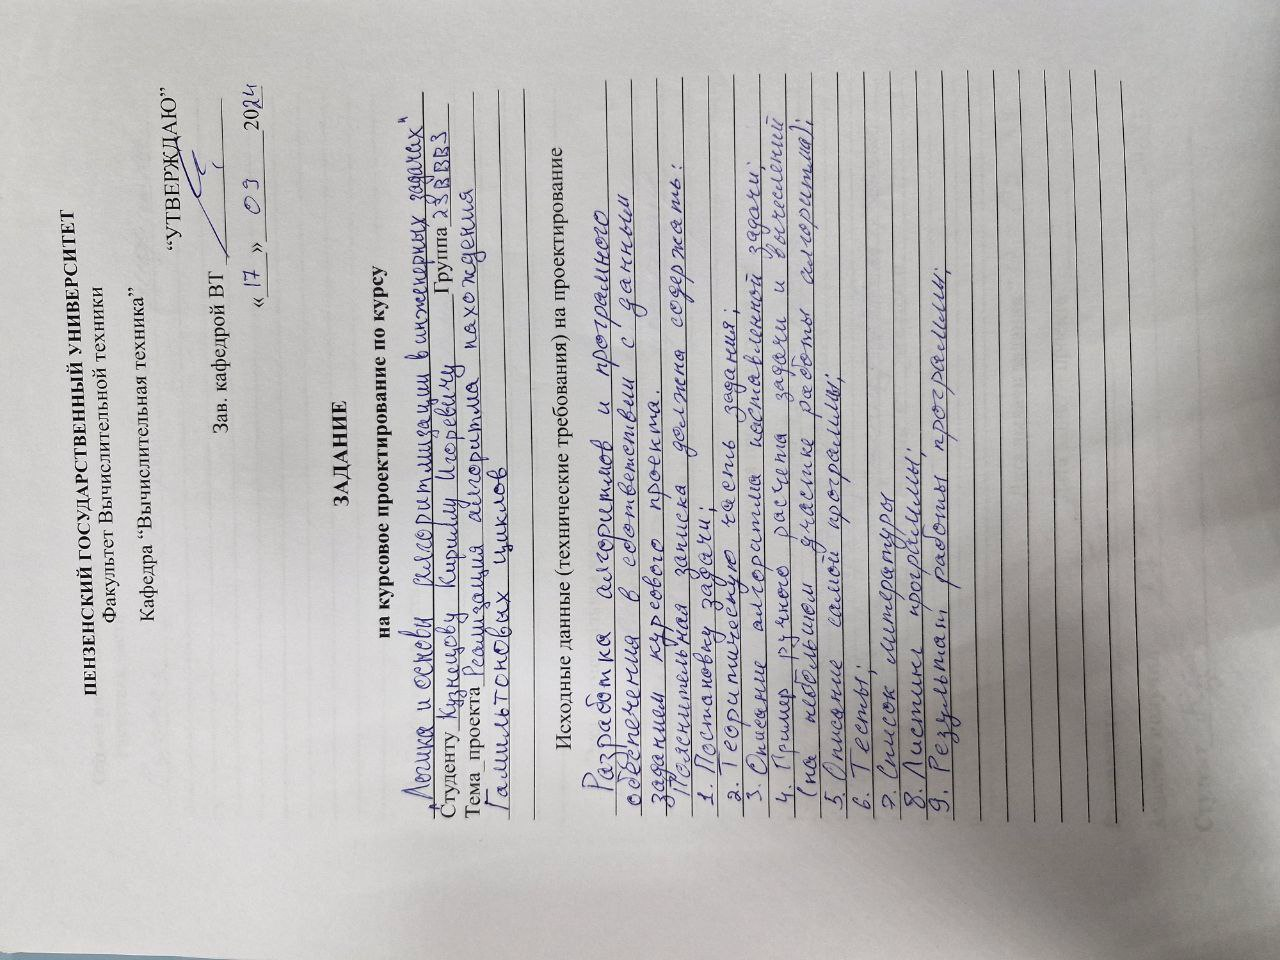 ПЕНЗЕНСКИЙ ГОСУДАРСТВЕННЫЙ УНИВЕРСИТЕТ
Факультет Вычислительной техники
Кафедра “Вычислительная техника”
“УТВЕРЖДАЮ”
Зав. кафедрой ВТ
«17» 09 2024
ЗАДАНИЕ
на курсовое проектирование по курсу
„Логика и основы алгоритмизации в инженерных задачах“
Студенту Кузнецову Кириллу Игоревичу Группа 23ВВВ3
Тема проекта Реализация алгоритма нахождения
Гамильтоновых циклов
Исходные данные (технические требования) на проектирование
Разработка алгоритмов и програмного
обеспечения в соответствии с данным
заданием курсового проекта.
Пояснительная записка должна содержать:
1. Постановку задачи;
2. Теоритическую часть задания;
3. Описание алгоритма поставленной задачи;
4. Пример ручного расчета задачи и вычеслений
(на небольшом участке работы алгоритма);
5. Описание самой программы;
6. Тесты;
7. Список литературы
8. Листинг программы;
9. Результат работы программы;